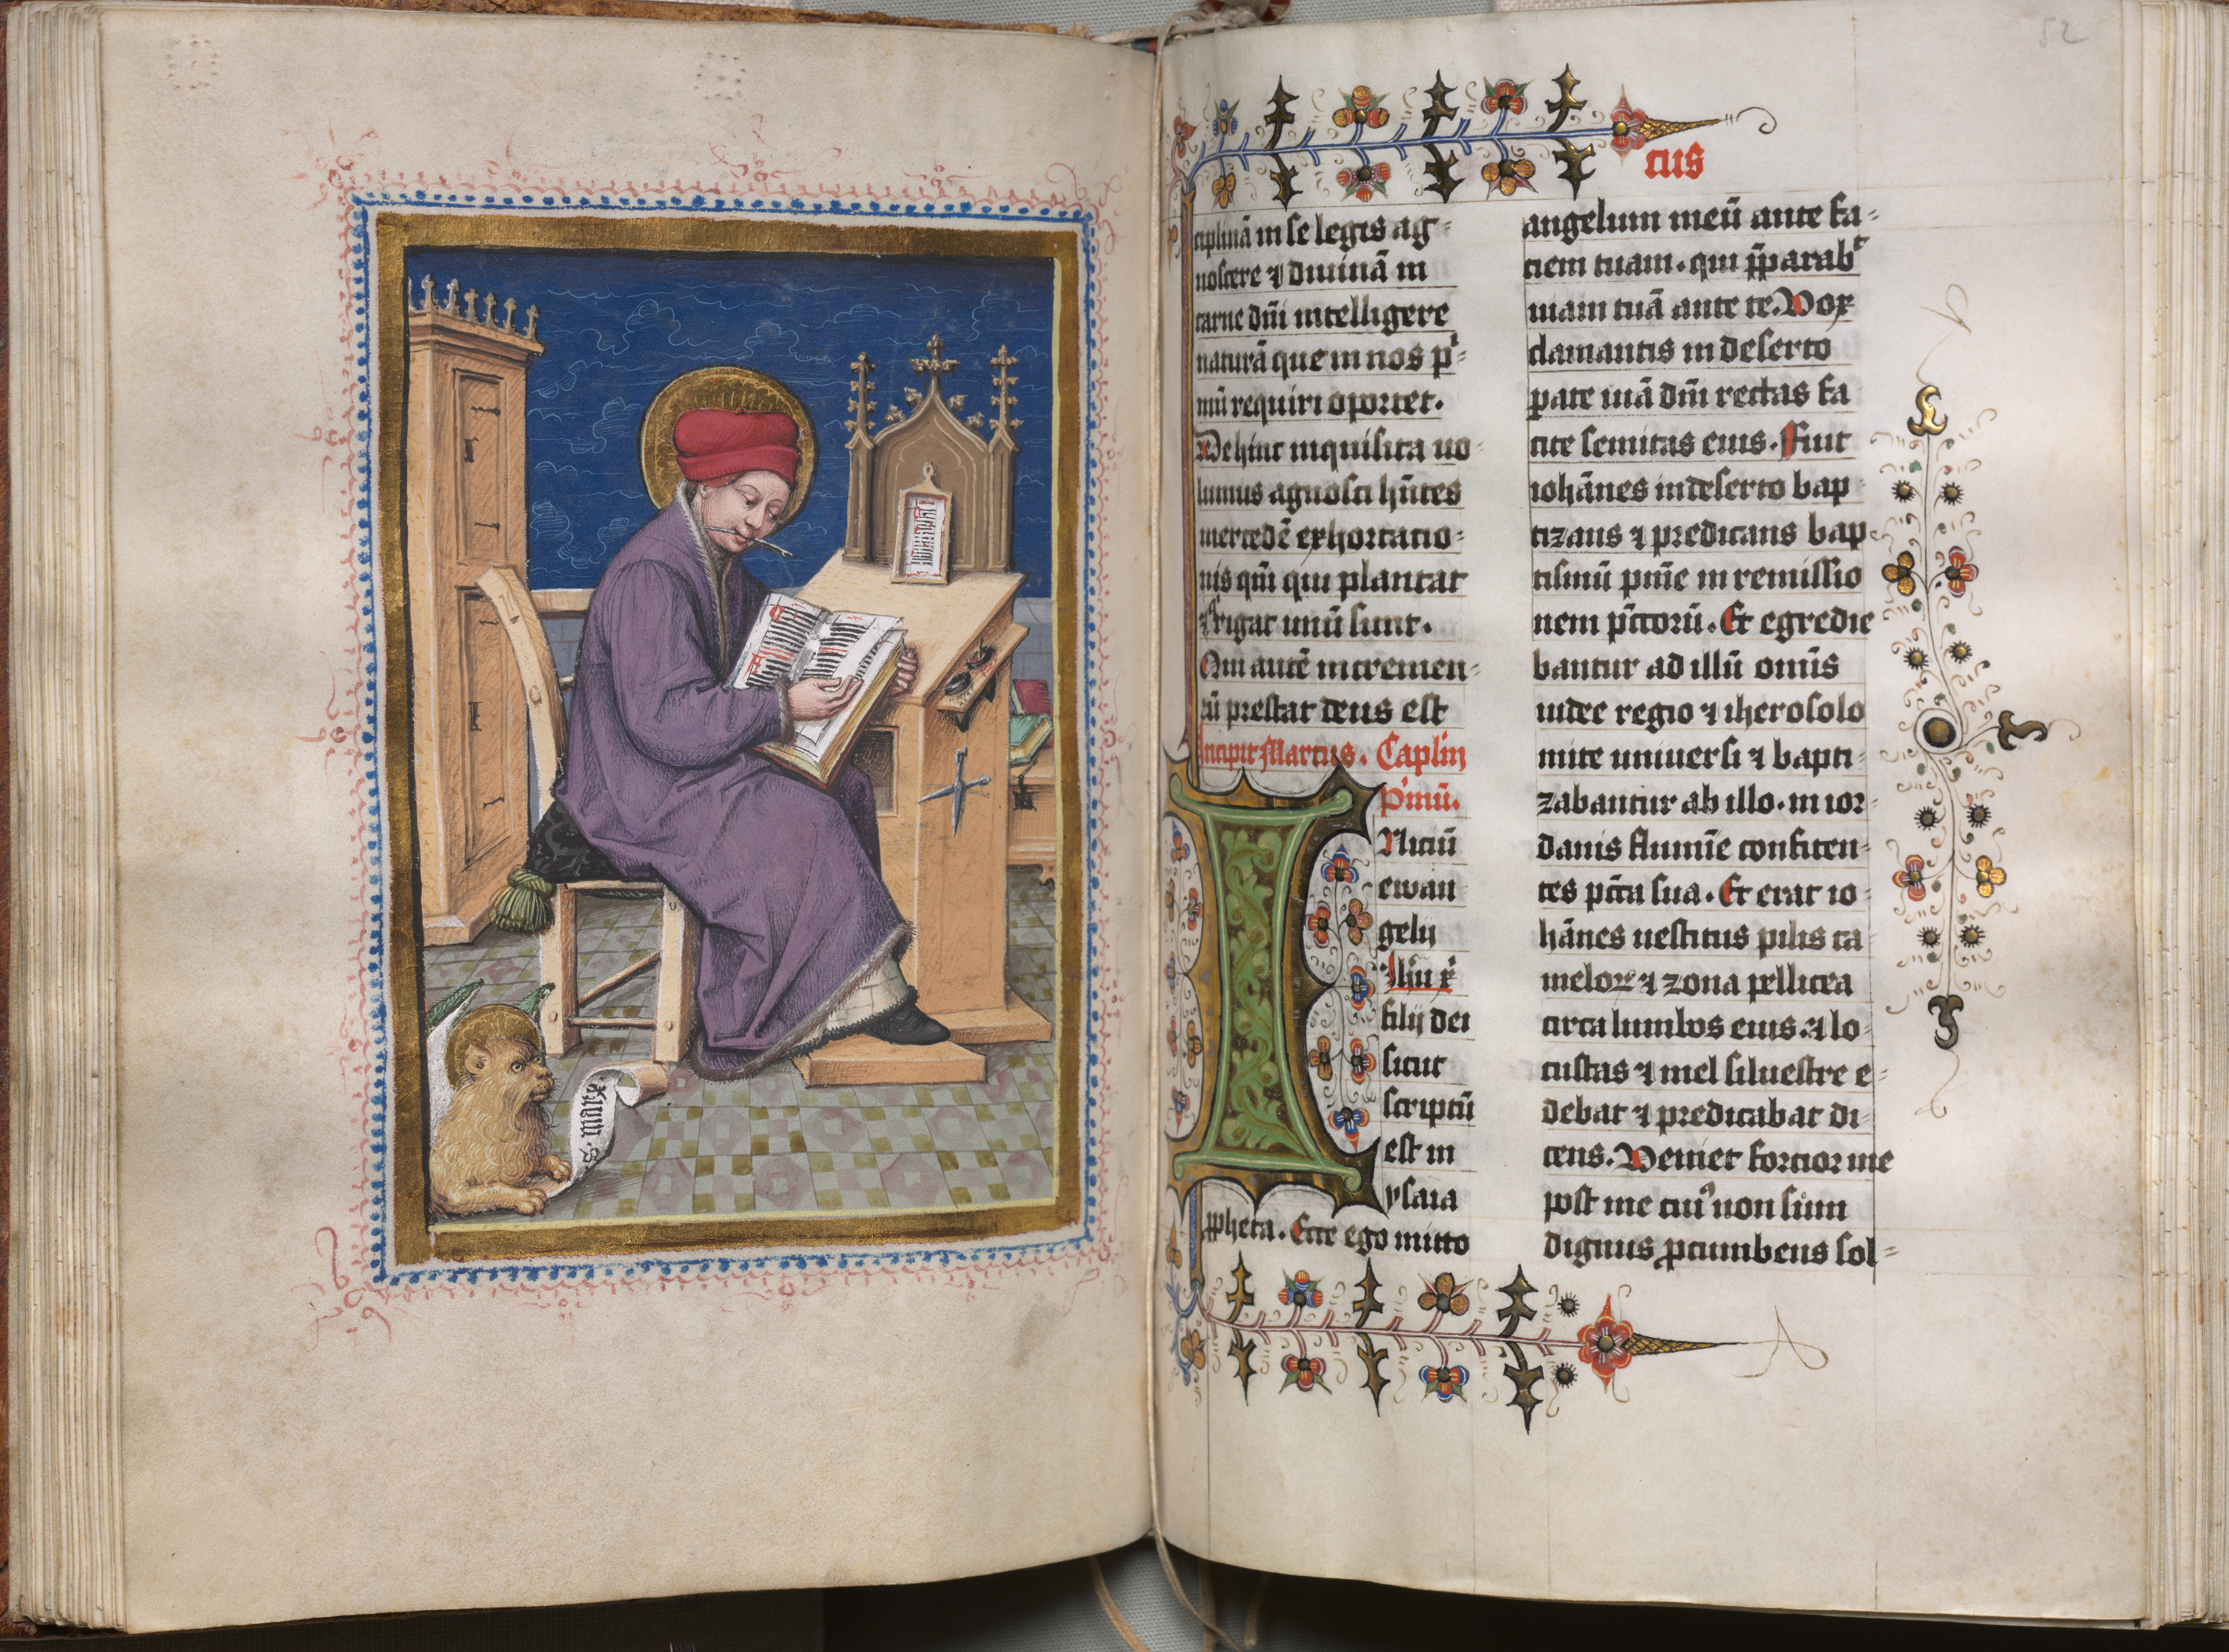 S. marx
52
cus
ciplinā in se legis ag-
noscere ⁊ diuinā in
carne dñi intelligere
naturā que in nos pⁱ-
mū requiri oportet.
Dehinc inquisita uo-
lumus agnosci hñtes
mercedē exhortatio-
nis qm̄ qui plantat
⁊ qⁱ rigat unū sunt.
Qui autē incremen-
tū prestat deus est
Incipit Marcus. Caplm̄
pⁱmū.
INiciū
ewan
gelij
Ihū xⁱ
filij dei
sicut
scriptū
est in
ysaia
ꝓpheta. Ecce ego mitto
angelum meū ante fa-
ciem tuam. qui p̄parabᵗ
uiam tuā ante te. Vox
clamantis in deserto
ꝑate uiā dñi rectas fa
cite semitas eius. Fuit
iohānes in deserto bap
tizans ⁊ predicans bap-
tismū pn̄ie in remissio
nem pc̄torū. Et egredie
bantur ad illū om̄s
iudee regio ⁊ iherosolo
mite uniuersi ⁊ bapti-
zabantur ab illo. in ior-
danis flumīe confiten-
tes pc̄ta sua. Et erat io-
hānes uestitus pilis ca
meloꝝ ⁊ zona pellicea
circa lumbos eius. ⁊ lo-
custas ⁊ mel siluestre e-
debat ⁊ predicabat di-
cens. Veniet fortior me
post me cuiꝰ non sum
dignus ꝓcumbens sol-